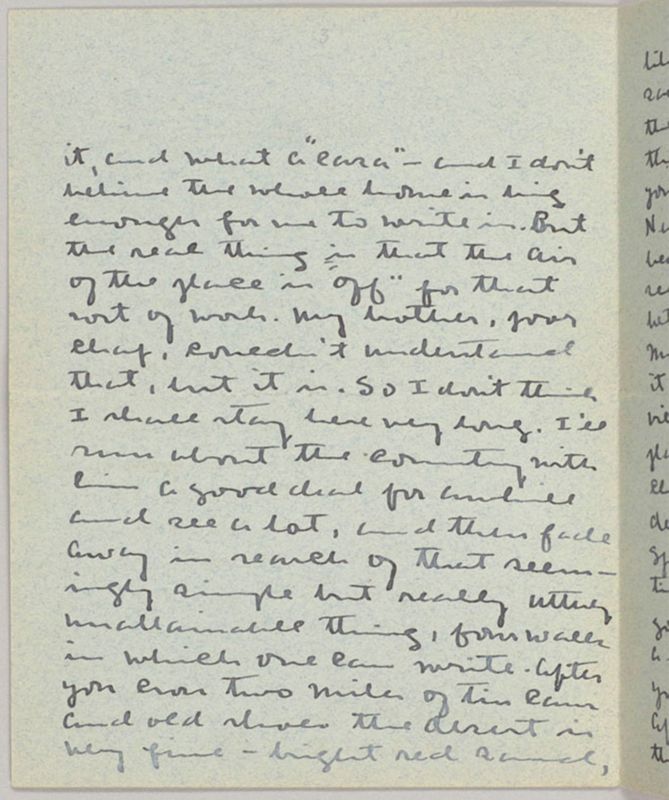 it, and what a "casa" — and I don't
believe the whole home is big
enough for me to write in. But
the real thing is that the air
of the place is "off" for that
sort of work. My brother, poor
chap, couldn't understand
that, but it is. So I don't think
I shall stay here very long. I'll
run about the country with
him a good deal for awhile
and see a lot, and then fade
away in search of that seem-
ingly simple but really utterly
unattainable thing, four walls
in which one can write. After
you cross two miles of tin cans
and old shoes the desert is
very fine — bright red sand,